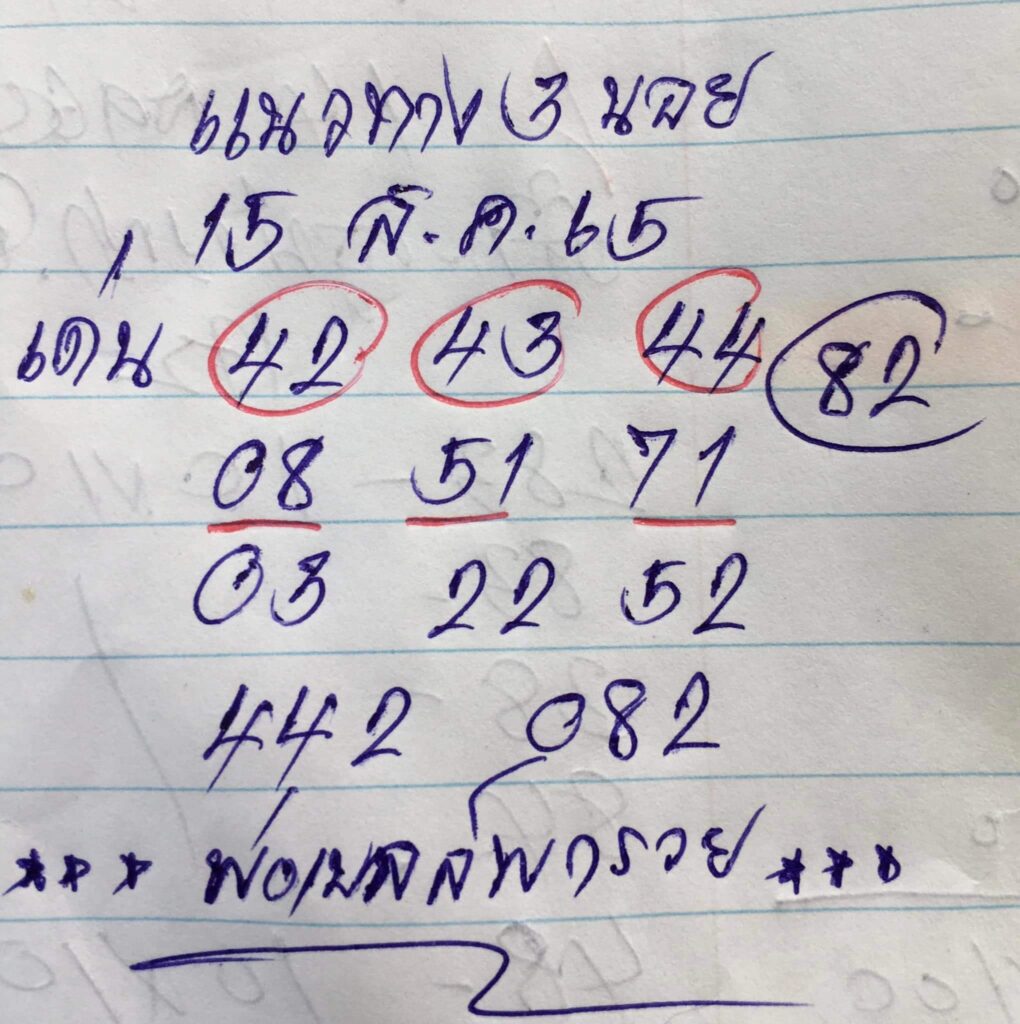 แนวทาง 3 นอย
15 ส.ค. 65
เด่น 42 43 44 82
08 51 71
03 22 52
442 082
*** พ่อเมลล์พารวย ***